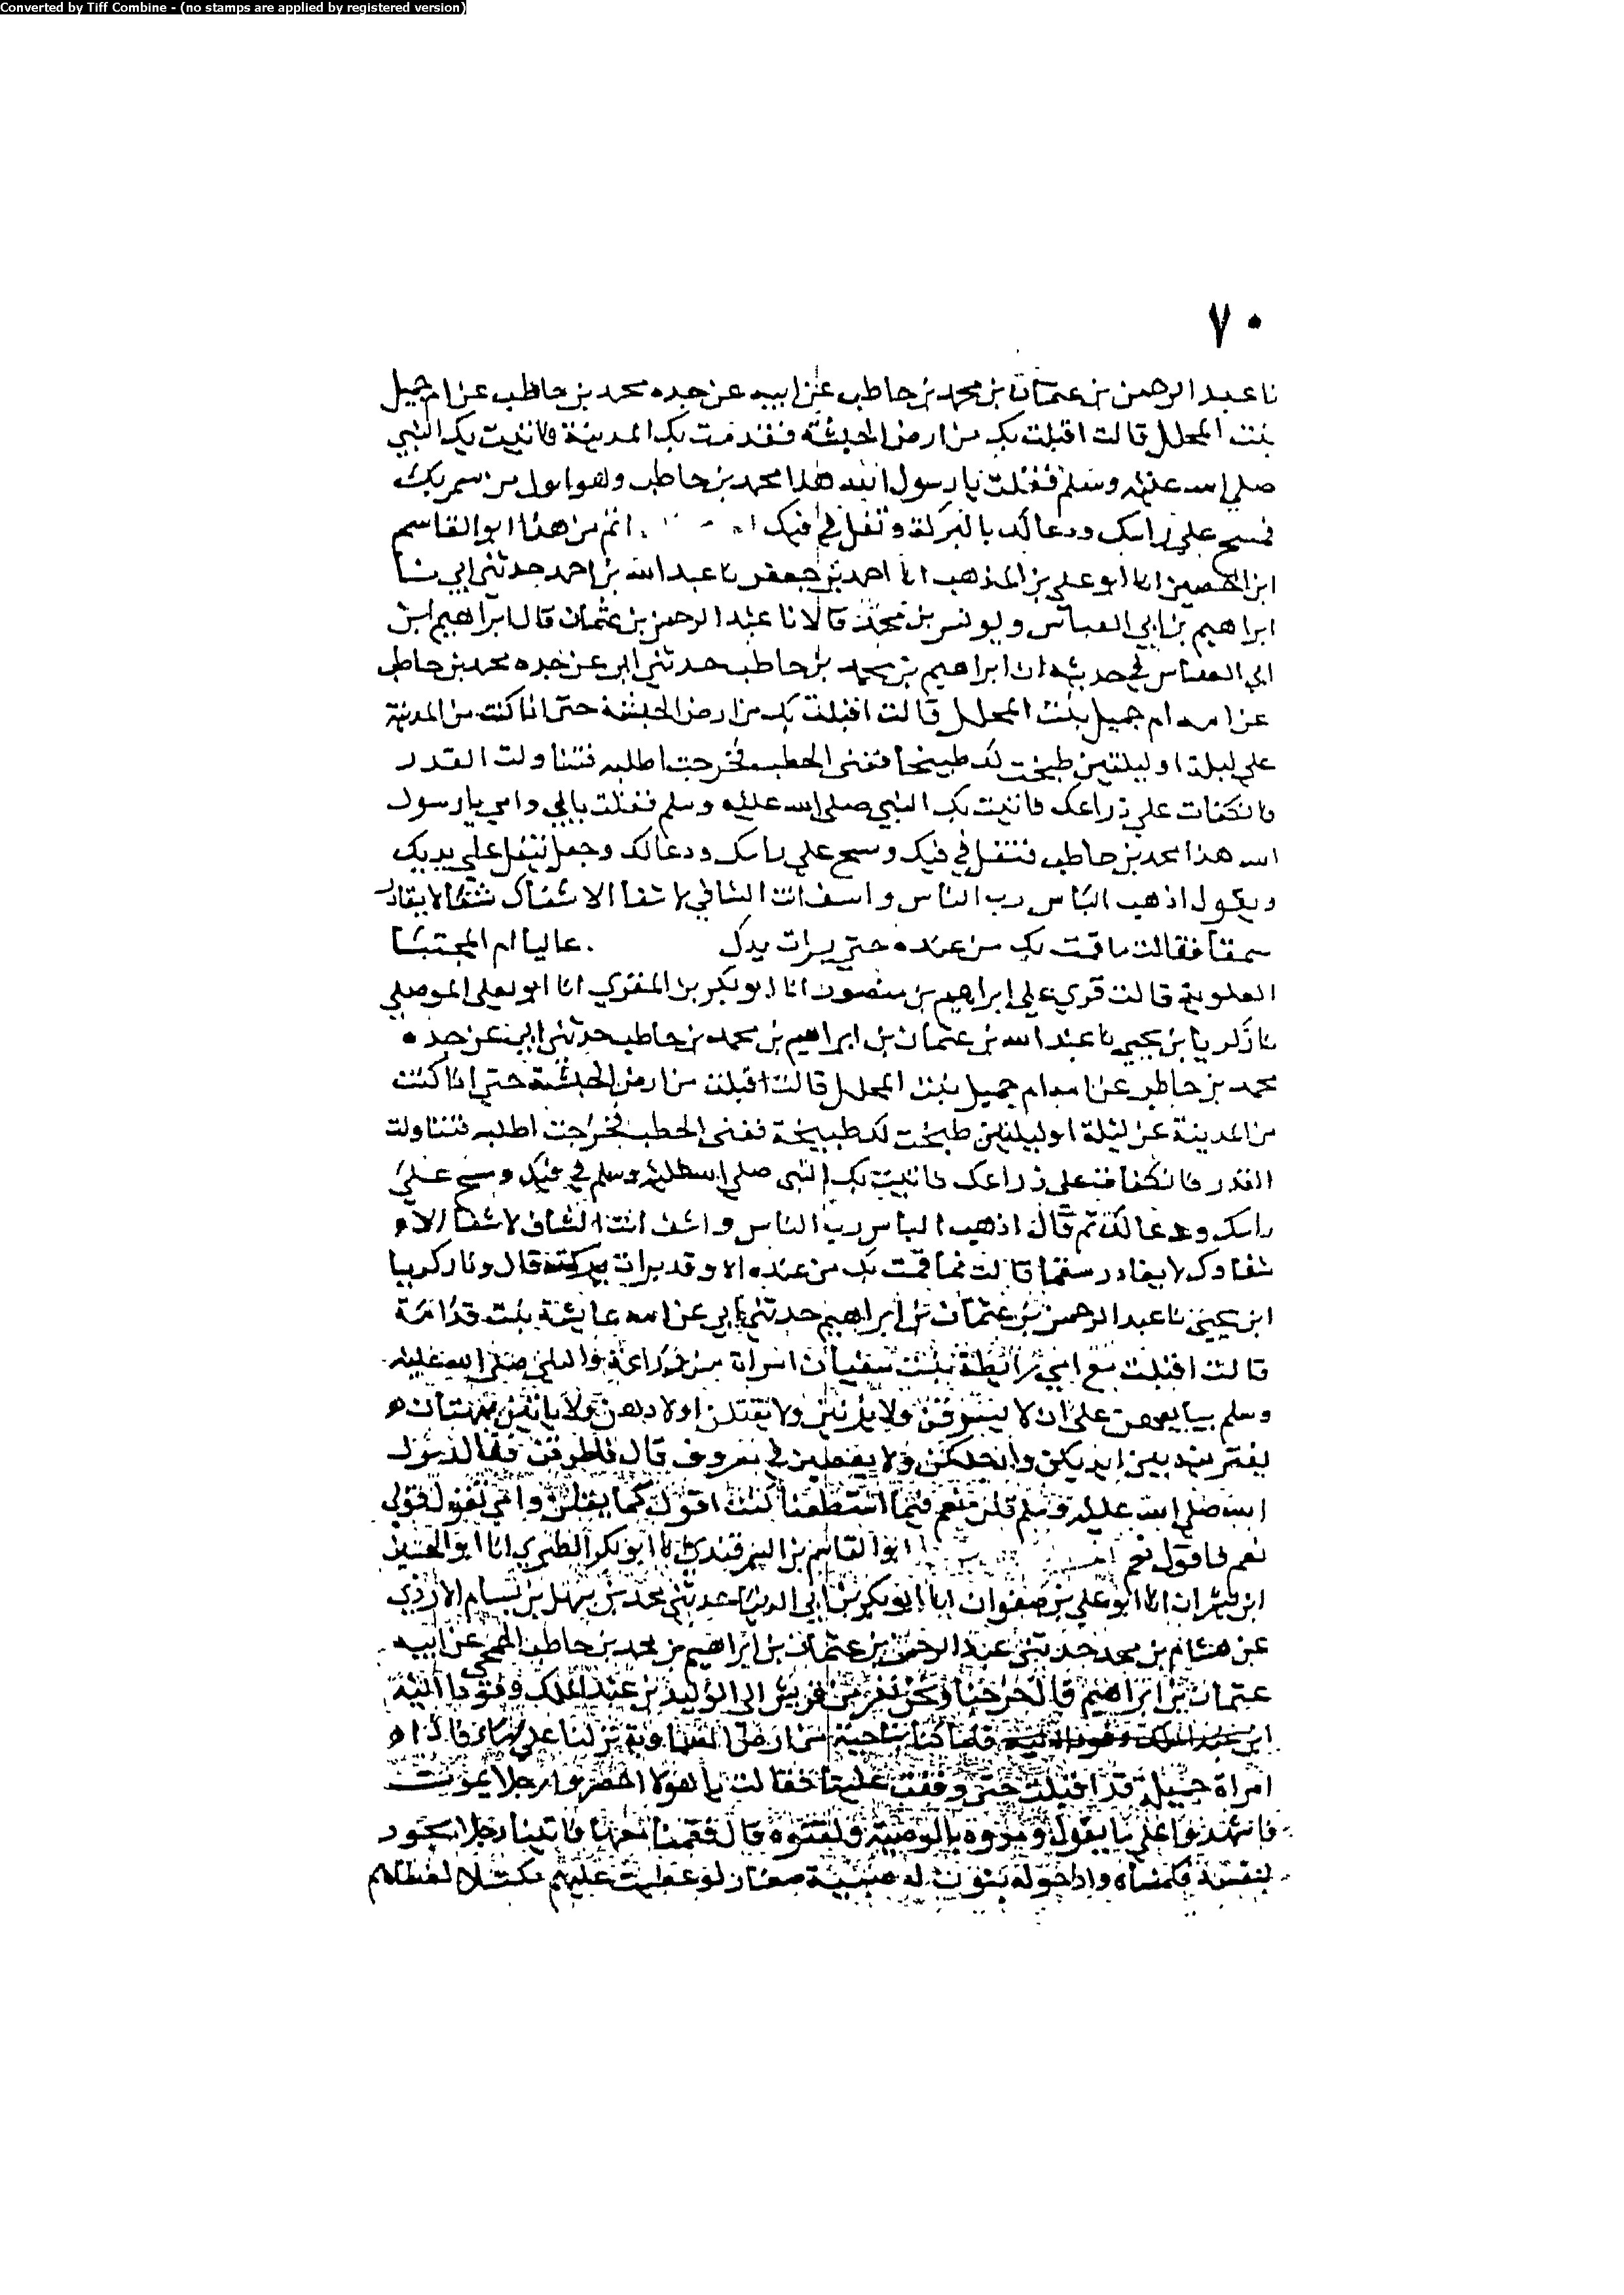 Converted by Tiff Combine - (no stamps are applied by registered version)
٧٠
نا عبد الرحمن بن عثمان بن محمد بن حاطب عن ابيه عن جده محمد بن حاطب عن ام جميل
بنت المجلل قالت اقبلت بك من ارض الحبشة فقدمت بك المدينة فاتيت بك النبي
صلى الله عليه وسلم فقلت يا رسول الله هذا محمد بن حاطب وهو اول من سمي بك
فمسح على راسك ودعا لك بالبركة وتفل في فيك ابو القاسم
ابن الحصين انا ابو علي بن المذهب انا احمد بن جعفر نا عبد الله بن احمد حدثني ابي نا
ابراهيم بن ابي العباس ويونس بن محمد قالا نا عبد الرحمن بن عثمان قال ابراهيم ابن
ابي العباس في حديثه ان ابراهيم بن محمد بن حاطب حدثني ابي عن جده محمد بن حاطب
عن امه ام جميل بنت المجلل قالت اقبلت بك من ارض الحبشة حتى اذا كنت من المدينة
على ليلة او ليلتين طبخت لك طبيخا ففني الحطب فخرجت اطلبه فتناولت القدر
فانكفات على ذراعك فاتيت بك النبي صلى الله عليه وسلم فقلت بابي وامي يا رسول
الله هذا محمد بن حاطب فتفل في فيك ومسح على راسك ودعا لك وجعل يتفل على يديك
ويقول اذهب الباس رب الناس واشف انت الشافي لا شفا الا شفاك شفا لا يغادر
سقما فقالت ما قمت بك من عنده حتى برات يدك عاليا ام المجتبا
العلوية قالت قري على ابراهيم بن منصور انا ابو بكر بن المقري انا ابو يعلى الموصلي
نا زكريا بن يحيى نا عبد الله بن عثمان بن ابراهيم بن محمد بن حاطب حدثني ابي عن جده
محمد بن حاطب عن امه ام جميل بنت المجلل قالت اقبلت من ارض الحبشة حتى اذا كنت
من المدينة عن ليلة او ليلتين طبخت لك طبيخة ففنى الحطب فخرجت اطلبه فتناولت
القدر فانكفات على ذراعك فاتيت بك النبي صلى الله عليه وسلم في فيك ومسح على
راسك ودعا لك ثم قال اذهب الباس رب الناس واشف انت الشاف لا شفا الا
شفاوك لا يغادر سقما قالت فما قمت بك من عنده الا وقد برات قال ونا زكريا
ابن يحيى نا عبد الرحمن بن عثمان بن ابراهيم حدثني ابي عن امه عايشة بنت قدامة
قالت اقبلت مع امي رائطة بنت سفيان امراة من خزاعة والنبي صلى الله عليه
وسلم يبايعهن على ان لا يسرقن ولا يزنين ولا يقتلن اولادهن ولا ياتين ببهتان
يفترينه بين ايديكن وارجلكن ولا يعصين في معروف قال فاطرقن فقال رسول
الله صلى الله عليه وسلم قلن نعم فيما استطعنا كنت اقول كما يقلن وامي تقول قولي
نعم فاقول نعم ابو القاسم بن السمرقندي انا ابو بكر الطبري انا ابو الحسين
ابن بشران انا ابو علي بن صفوان انا ابو بكر بن ابي الدنيا حدثني محمد بن سهل بن بسام الازدي
عن هشام بن محمد حدثني عبد الرحمن بن عثمان بن ابراهيم بن محمد بن حاطب الجمحي عن ابيه
عثمان بن ابراهيم قال خرجنا ونحن نفر من قريش الى الوليد بن عبد الملك وفودا اليه
ابن عبد الملك وفودا اليه فلما كنا بناحية من ارض السماوة نزلنا على ماء فاذا
امراة جميلة قد اقبلت حتى وقفت علينا فقالت يا هولا احضروا رجلا يموت
فاشهدوا على ما يقول ومروه بالوصية ولقنوه قال فقمنا معها فاتينا رجلا يجود
بنفسه فكلمناه واذا حوله بنون له صبية صغار لو غطيت عليهم مكتلا لغطاهم